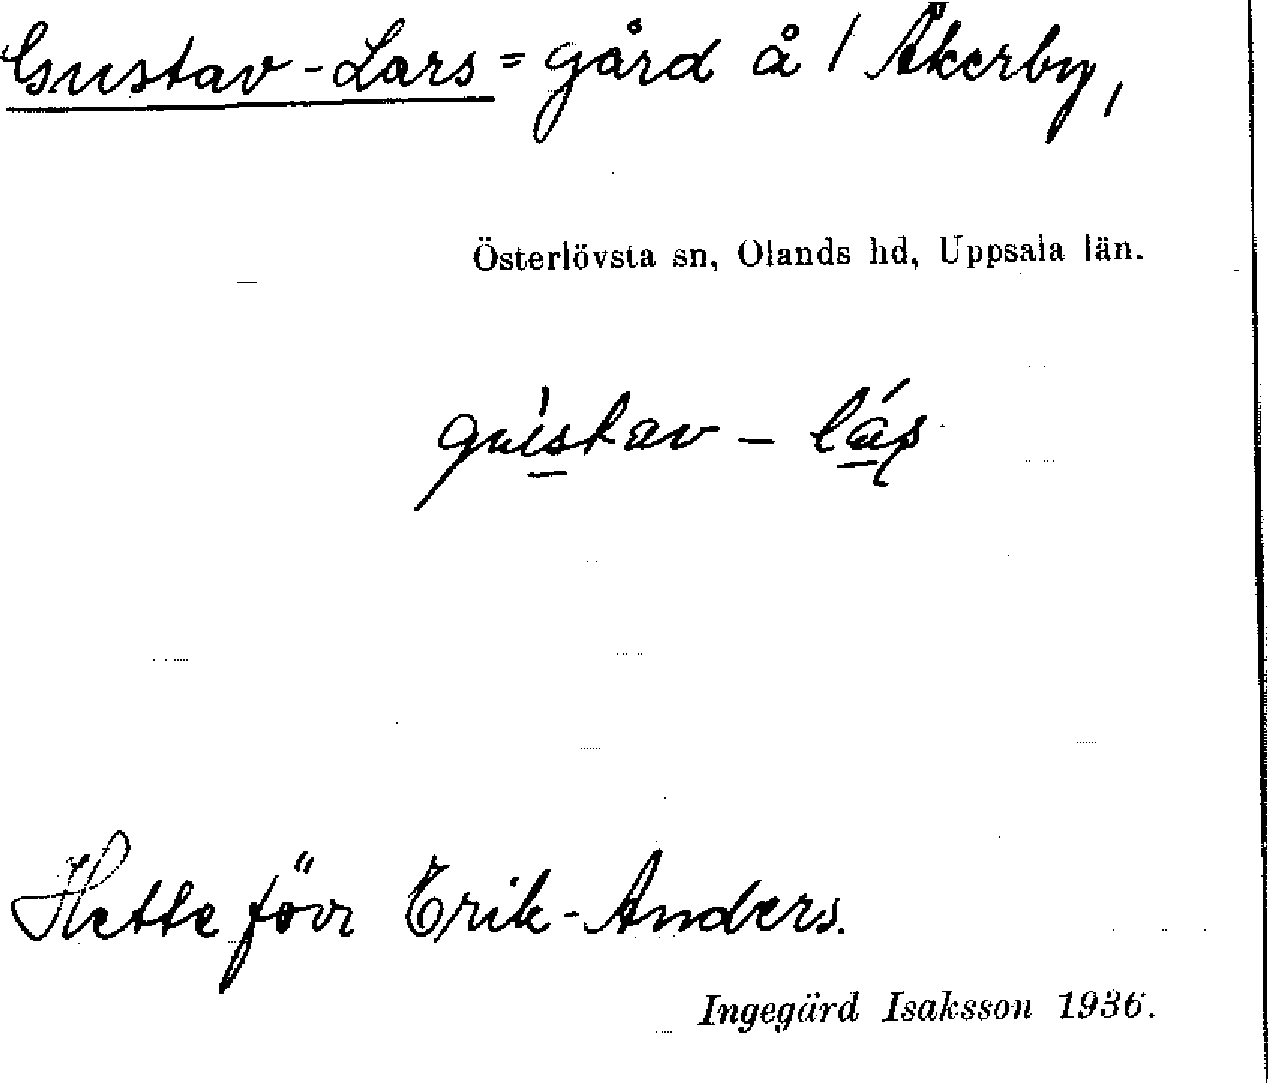 Gustav-Lars = gård å / Åkerby,
Österlövsta sn, Olands hd, Uppsala län.
gústav – lás
Hette förr Erik-Anders.
Ingegärd Isaksson 1936.